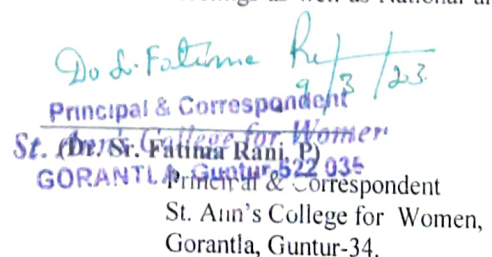 as well as National a
Dr Sr. Fatima R
9/3/23
Principal & Correspondent
St. Ann's College for Women
GORANTLA, Guntur-522 035
(Dr. Sr. Fatima Rani, P)
Principal & Correspondent
St. Ann's College for Women,
Gorantla, Guntur-34.